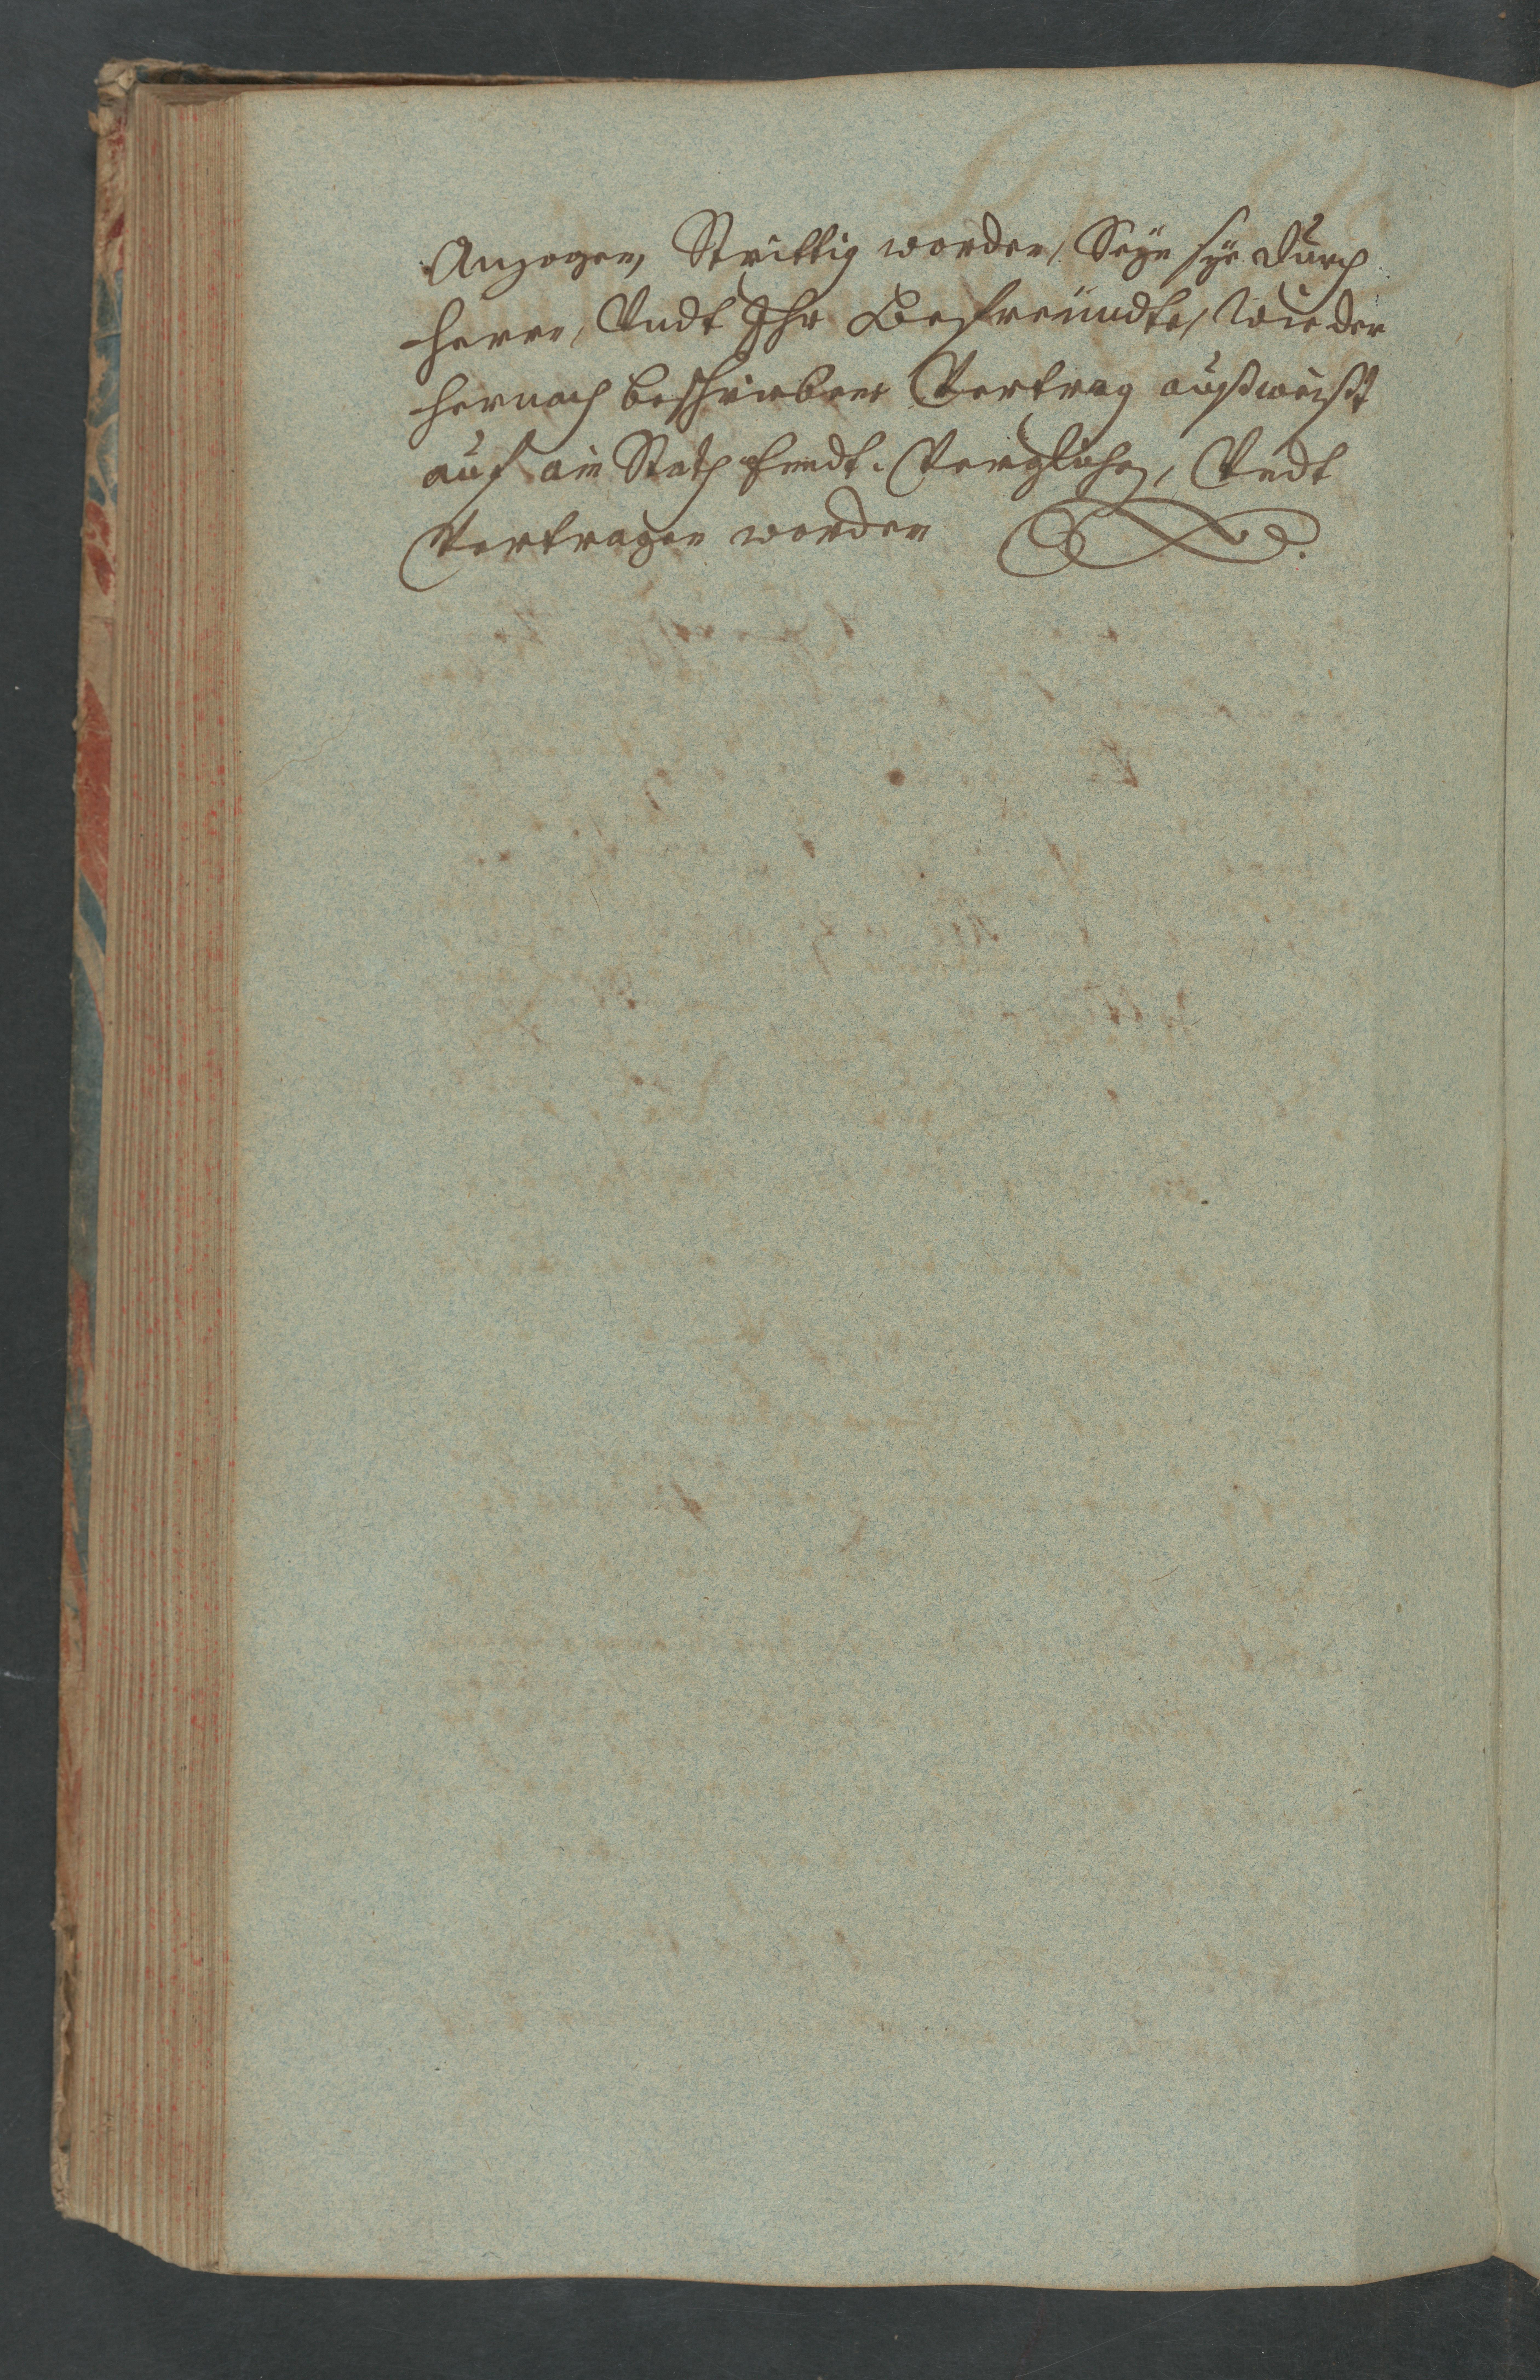 Anzogen, Strittig worden, Seyn sye durch
herrn, Vndt Ihr Befreündte, Wie der
hernach beschrieben Vertrag außweißt
auf ain Vergliche, Vndt
Vertragen worden